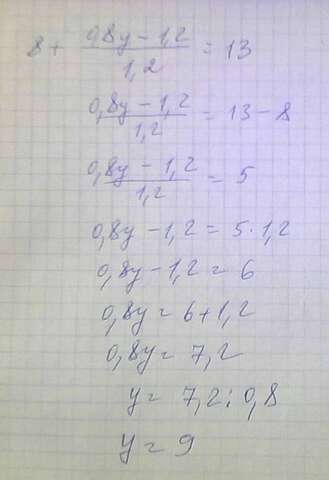 8 + (0,8y − 1,2)/1,2 = 13
(0,8y − 1,2)/1,2 = 13 − 8
(0,8y − 1,2)/1,2 = 5
0,8y − 1,2 = 5 · 1,2
0,8y − 1,2 = 6
0,8y = 6 + 1,2
0,8y = 7,2
y = 7,2 : 0,8
y = 9